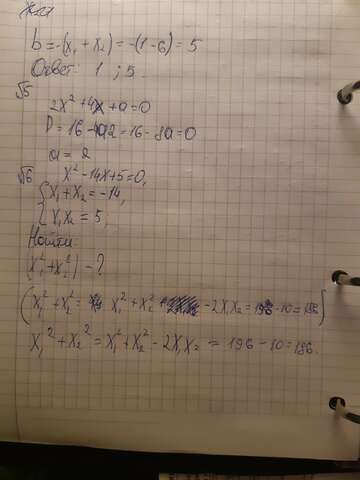 b = -(x₁ + x₂) = -(1-6) = 5
Ответ: 1 ; 5.
√5
2x² + 4x + a = 0
D = 16 - 4a2 = 16 - 8a = 0
a = 2
√6 x² - 14x + 5 = 0,
{ x₁ + x₂ = -14,
x₁x₂ = 5,
Найти:
(x₁² + x₂²) - ?
(x₁² + x₂² = x₁² + x₂² - 2x₁x₂ = 196 - 10 = 186)
x₁² + x₂² = x₁² + x₂² - 2x₁x₂ = 196 - 10 = 186.